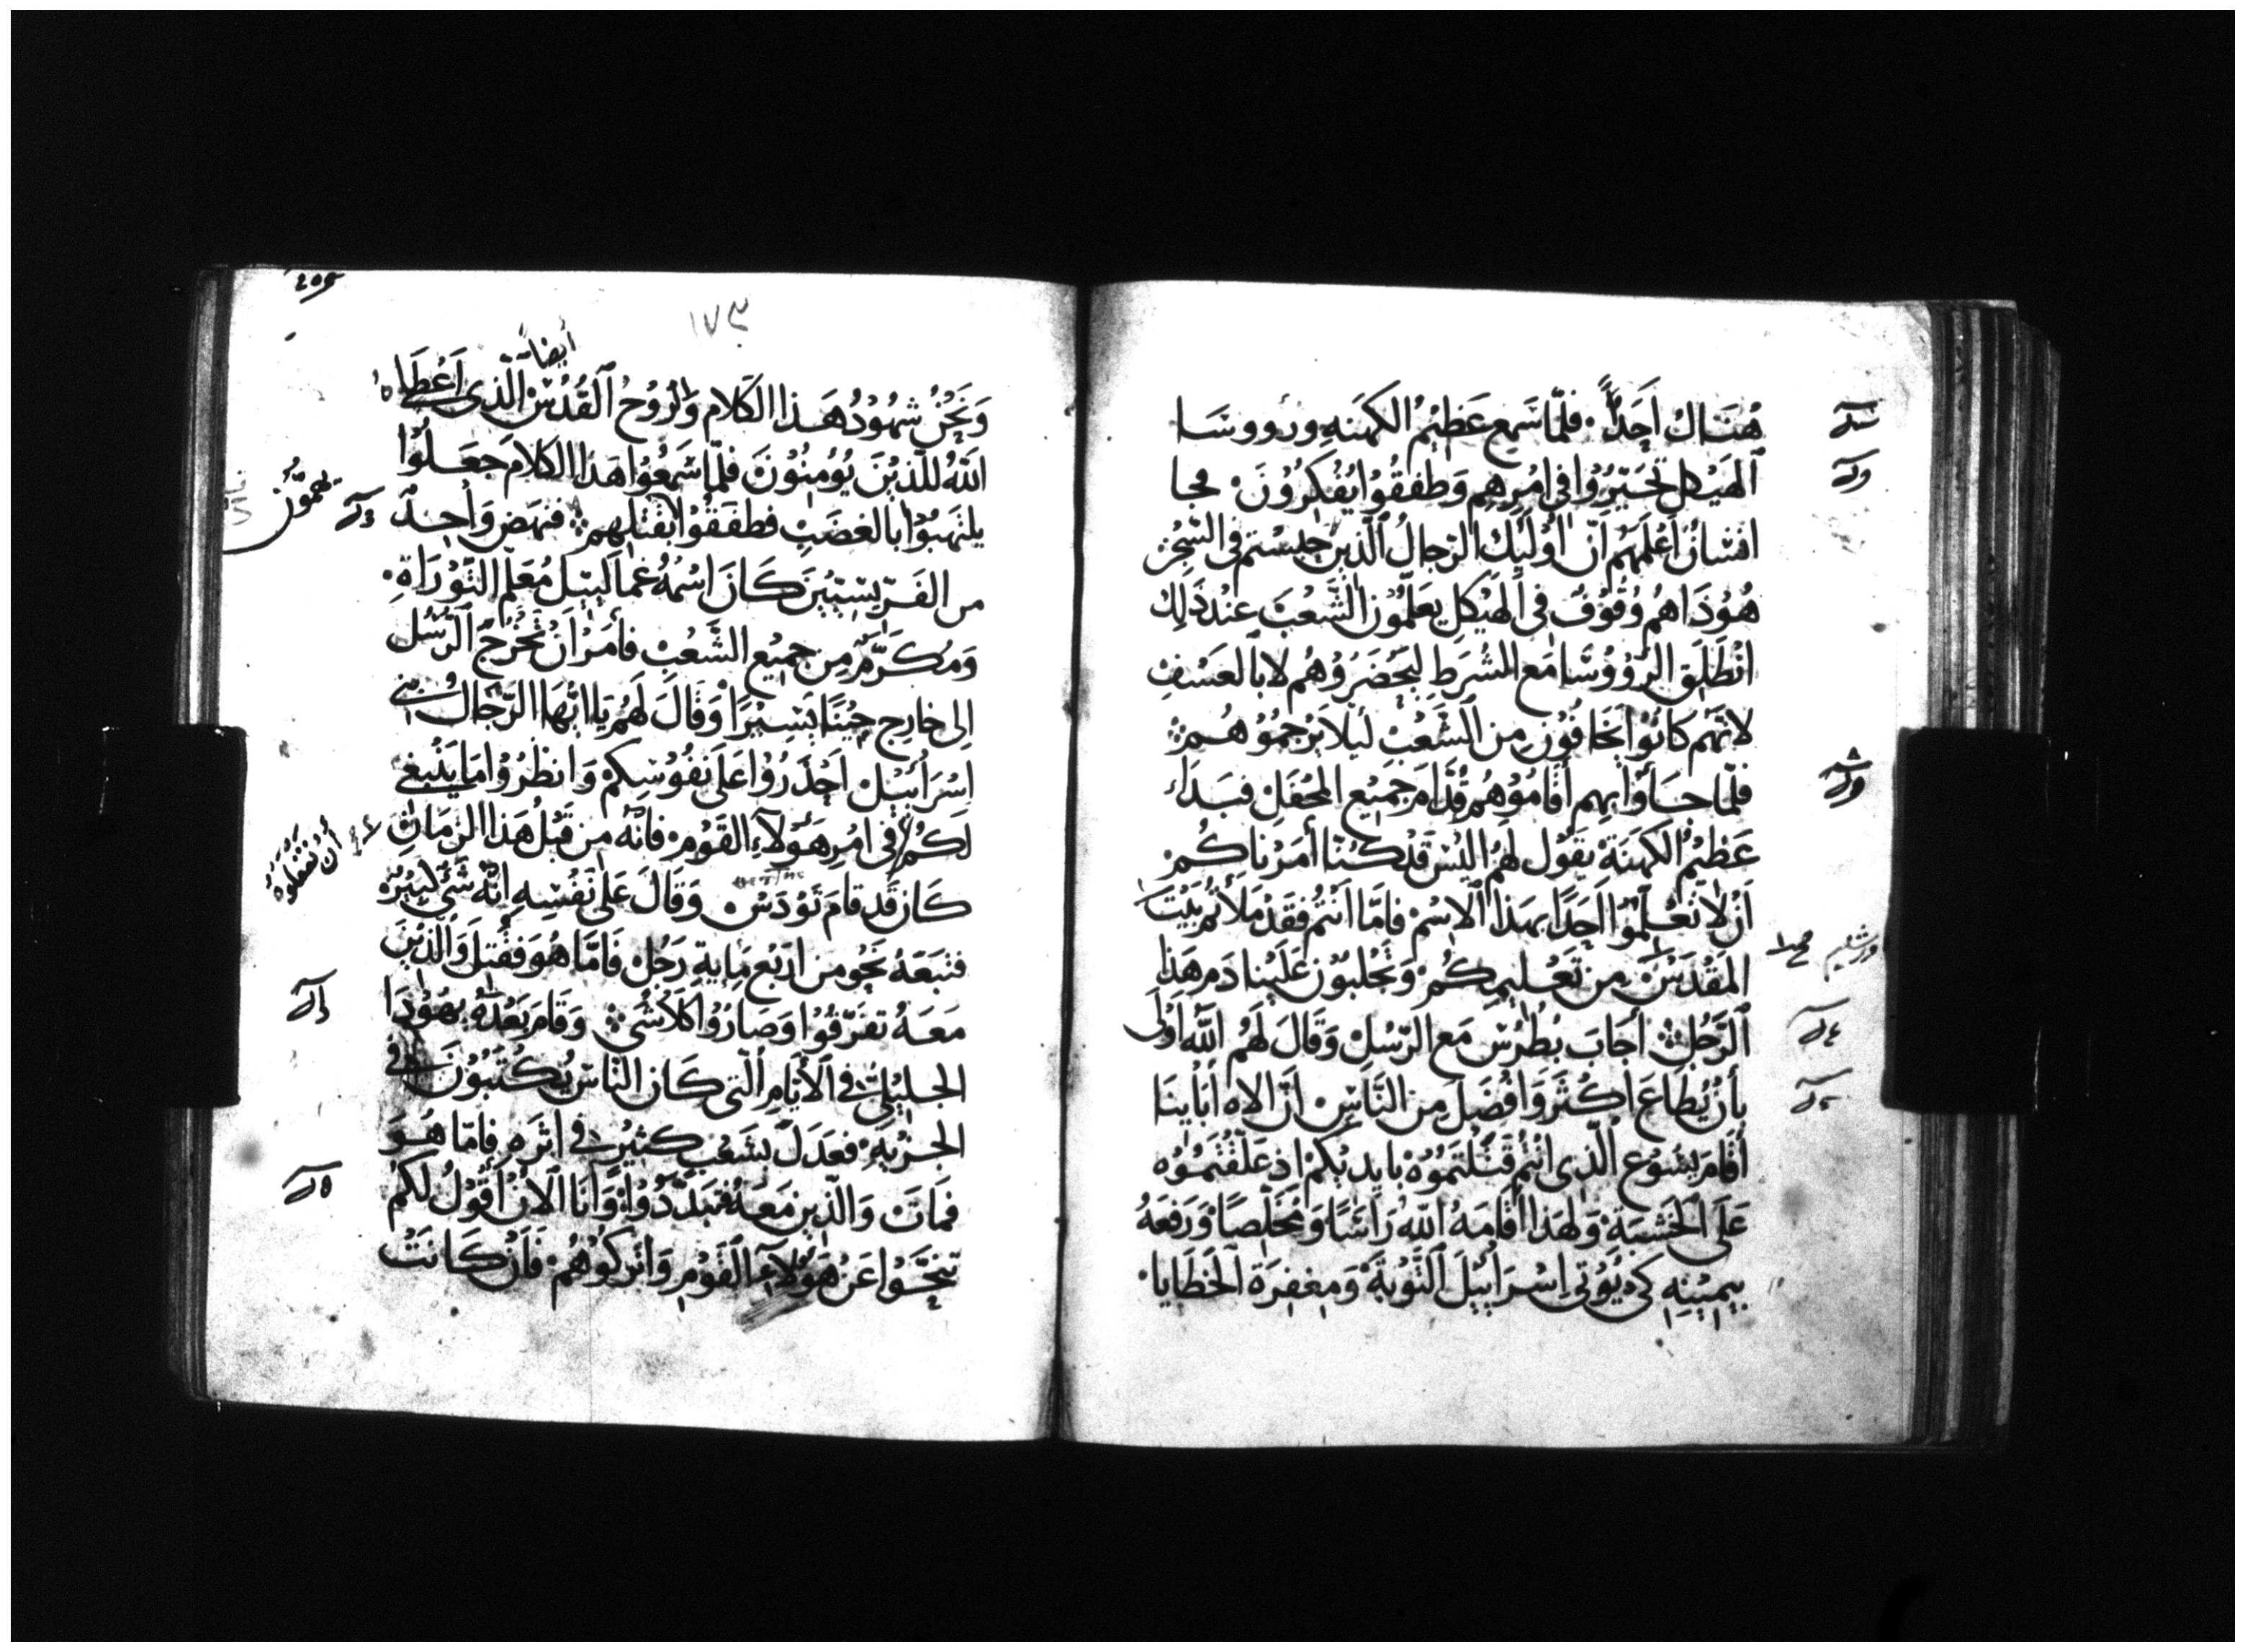 هُنَاكَ اَحَدًا. فلمّا سَمِع عَظِيْمُ الكهَنهِ ورووسَا
اَلهَيْكلِ تحَيّرُوا في امْرِهِم وَطفقُوا يُفْكِرُوْنَ. فجا
انسَان اَعْلَمَهُم اَنّ اُوْلَيِكَ الرّجالُ اَلّذين حبستم في السّجْن
هُوْذا هُم وُقُوْفٌ في اَلهَيْكلِ يعَلّمُوْن الشّعْبَ عنْد ذَلِكَ
انْطَلَق الرّوُوْسَا مَع الشُرَط ليَحْضَرُوْهُم لا بالعَسْفِ
لانّهم كانُوا يخَافُوْن مِن اَلشّعْبِ ليَلا يَرْجمُوْهُم
فلمّا جَاَوا بهِم أَقامُوْهُم قُدَّامَ جَمِيْع المحْفَلِ فبَدَاَء
عَظِيْمُ الكَهَنَةِ يقَوْل لهُم اليْسَ قدْ كُنّا أَمَرْنَاكُمْ
اَنْ لاَ تُعَلّمُوْا اَحَدًا بهذا اَلاسْم فامّا اَنْتُم فقَدْ مَلأتُم بَيْتَ
المَقْدَسْ مِن تَعْليمِكُمْ وَتُجْلبُوْن عَلَيْنا دَم هَذا
اَلرّجُلِ أَجابَ بُطْرُس مَع الرّسُلِ وَقَالَ لَهُم اَللّه اَوْلَى
بأَنْ يُطاعَ اَكثَر وَاَفْضَل مِن النّاسِ اَنّ الاه اَبَايِنَا
أَقَامَ يسُوْع الّذى انْتُم قَتَلْتمُوْهُ بايدِيْكم اذ علّقْتمُوْه
عَلَى اَلخشَبَةِ وَلهذا أَقامَهُ اَللّه رَاسًا وَمُخَلّصًا وَرَفعَهُ
بيَمِيْنِه كَى يُؤتى اسْرَايِيْلَ اَلتّوْبةَ وَمغفِرَة اَلخَطايا
١٧٣
أيضاً
وَنَحْنُ شهُوْدُ هَذا الكَلام وَالرُوْحُ اَلقُدُسُ الّذى اَعْطَاه
اللّهُ للّذِيْنَ يُؤمِنُوْنَ فلمّا سَمعُوا هَذا الكَلامَ جَعَلُوْا
يلتهبُوْا بالغضَبِ فطفقُوا لقَتْلهِم فنهَض وَاحِد
مِن الفَرّيسِيّيْن كَانَ اسْمُهُ غمَالَيِيْل مُعَلّم التّوْرَاةِ.
وَمُكَرّم مِن جمِيْع الشّعْبِ فأمَرَ اَنْ تُخْرَجَ اَلرّسُل
الى خارج حِيْنًا يَسِيْرًا وَقَالَ لَهُم يَا ايّهَا الرّجَال بني
اِسْرَأييْل اَحْذَرُوْا عَلَى نفُوْسِكمْ وَانظُرُوْا مَا يَنْبغى
لَكُم في امْرِ هَؤُلآءِ القَوْم فانّهُ مِن قَبْل هَذا الزّمَانِ
كَان قَد قام تَوْدَس وَقَالَ عَلى نفْسِه اِنّه شَى كبِيْر
فتبَعَهُ نحْو مِن ارْبَع مِايةِ رَجُلْ فَامّا هُوَ فقُتِل وَالّذِيْنَ
مَعَهُ تفَرّقوُا وَصَارُوْا كَلاَ شَىْ وَقامَ بَعْدَهُ يهُوْذَا
الجليْلِىّ في اَلأيّامِ الّتى كَان النّاسْ يُكْتَبُوْن في
الجزْيةِ فعَدَلَ بشَعْبٍ كثيْرٍ في اثرِهِ فامّا هُوَ
فمَاتَ وَالّذِين مَعَهُ فتبَدّدُوْا وَأنَا اَلآن أَقُوْلُ لَكُم
تنحّوْا عَن هَؤلآءِ القَوْمِ وَاتركُوْهُم فاَنْ كَانَتْ
يهمّون
أن تفعلوه